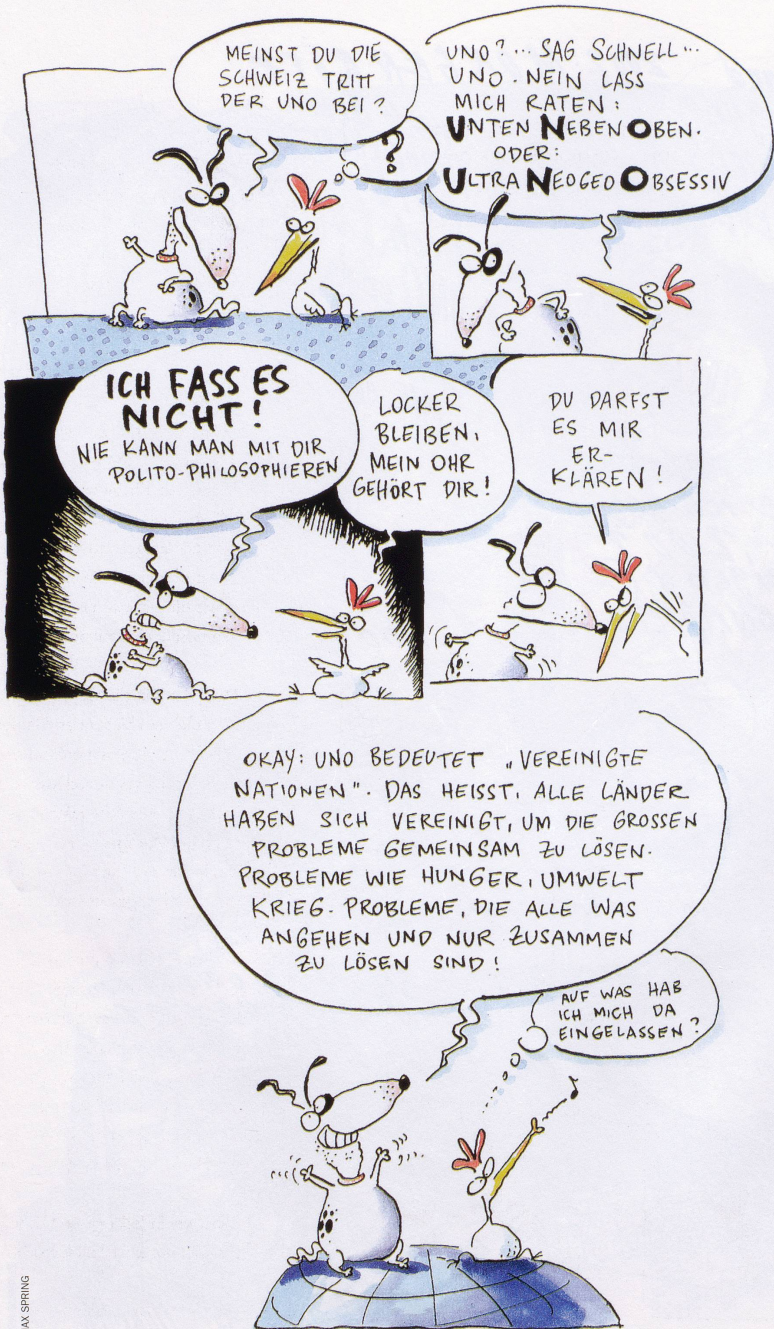 MEINST DU DIE
SCHWEIZ TRITT
DER UNO BEI?
?
UNO?... SAG SCHNELL...
UNO. NEIN LASS
MICH RATEN:
UNTEN NEBEN OBEN.
ODER:
ULTRA NEOGEO OBSESSIV
ICH FASS ES
NICHT!
NIE KANN MAN MIT DIR
POLITO-PHILOSOPHIEREN
LOCKER
BLEIBEN,
MEIN OHR
GEHÖRT DIR!
DU DARFST
ES MIR
ER-
KLÄREN!
OKAY: UNO BEDEUTET „VEREINIGTE
NATIONEN". DAS HEISST, ALLE LÄNDER
HABEN SICH VEREINIGT, UM DIE GROSSEN
PROBLEME GEMEINSAM ZU LÖSEN.
PROBLEME WIE HUNGER, UMWELT
KRIEG. PROBLEME, DIE ALLE WAS
ANGEHEN UND NUR ZUSAMMEN
ZU LÖSEN SIND!
AUF WAS HAB
ICH MICH DA
EINGELASSEN?
AX SPRING